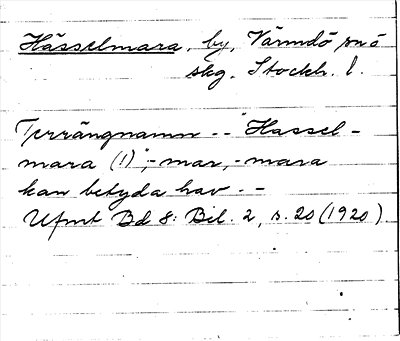 Hässelmara, by, Värmdö snö
skg. Stockh. l.
Terrängnamn -- "Hassel-
mara (!)"; -mar, -mara
kan betyda hav. --
Ufmt Bd 8: Bil. 2, s. 20 (1920).